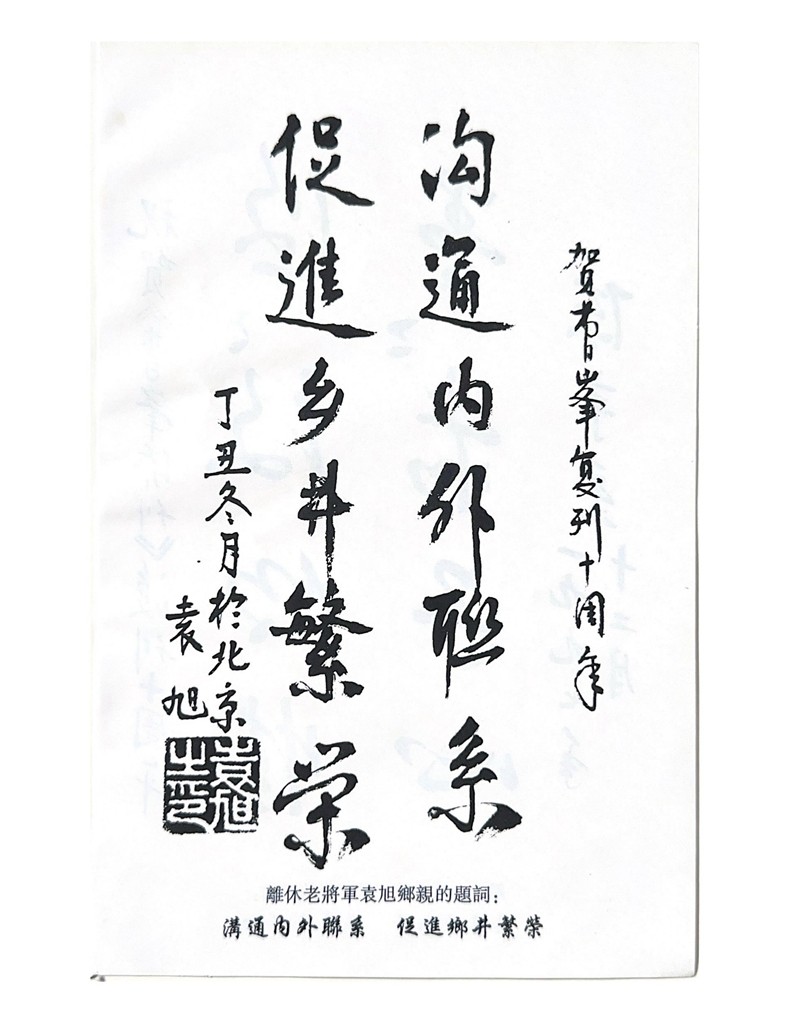 賀曹峯复刊十周年
沟通内外联系
促進乡井繁荣
丁丑冬月於北京
袁旭
袁旭之印
離休老將軍袁旭鄉親的題詞：
溝通內外聯系　促進鄉井繁榮